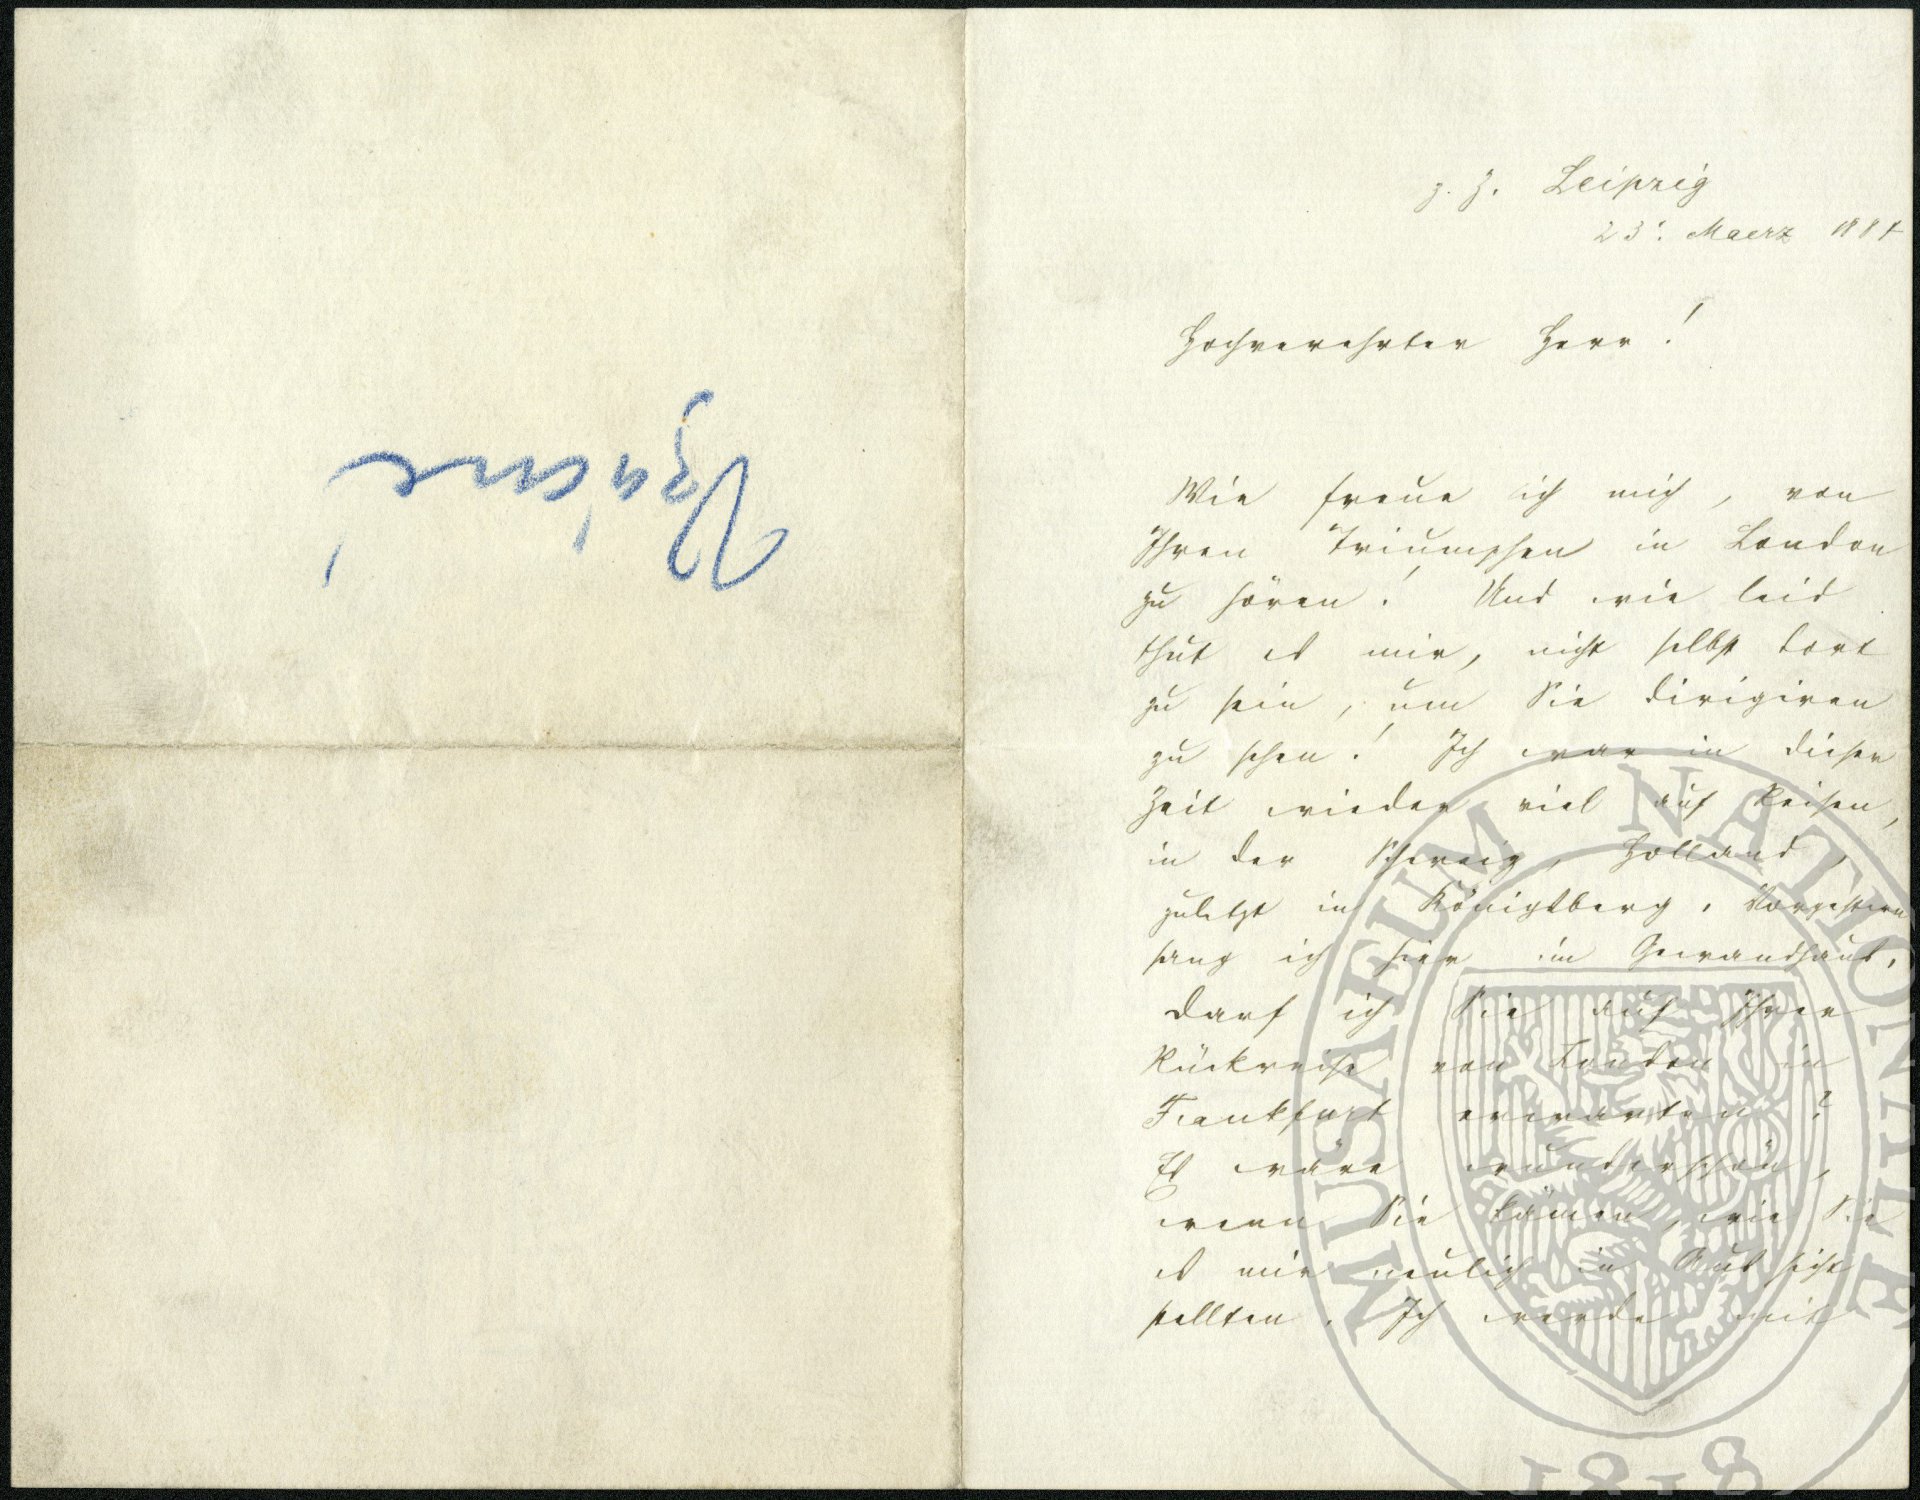 z. Z. Leipzig
23. Maerz 1884
Hochverehrter Herr!
Wie freue ich mich, von
Ihren Triumphen in London
zu hören! Und wie leid
thut es mir, nicht selbst dort
zu sein, um Sie dirigiren
zu sehen! Ich war in dieser
Zeit wieder viel auf Reisen,
in der Schweiz, Holland,
zuletzt in Königsberg. Vorgestern
sang ich hier im Gewandhaus.
Darf ich Sie auf Ihrer
Rückreise von London in
Frankfurt erwarten?
Es wäre wunderschön,
wenn Sie kämen, wie Sie
es mir neulich in Aussicht
stellten. Ich werde mit
MUSAEUM NATIONALE
1818